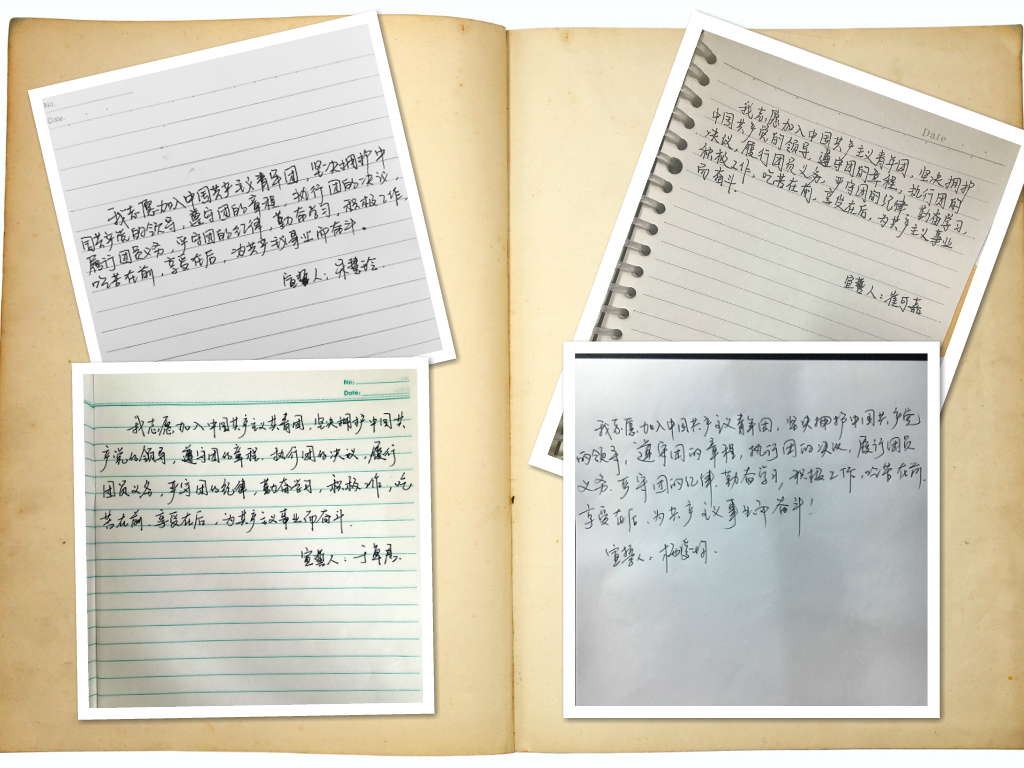 No.
Date.
我志愿加入中国共产主义青年团，坚决拥护中
国共产党的领导，遵守团的章程，执行团的决议，
履行团员义务，严守团的纪律，勤奋学习，积极工作，
吃苦在前，享受在后，为共产主义事业而奋斗。
宣誓人：宋慧玲
Date
我志愿加入中国共产主义青年团，坚决拥护
中国共产党的领导，遵守团的章程，执行团的
决议，履行团员义务，严守团的纪律，勤奋学习，
积极工作，吃苦在前，享受在后，为共产主义事业
而奋斗。
宣誓人：崔可鑫
No:
Date:
我志愿加入中国共产主义共青团，坚决拥护中国共
产党的领导，遵守团的章程，执行团的决议，履行
团员义务，严守团的纪律，勤奋学习，积极工作，吃
苦在前，享受在后，为共产主义事业而奋斗．
宣誓人：于
我志愿加入中国共产主义青年团，坚决拥护中国共产党
的领导，遵守团的章程，执行团的决议，履行团员
义务，严守团的纪律，勤奋学习，积极工作，吃苦在前，
享受在后，为共产主义事业而奋斗！
宣誓人：杨